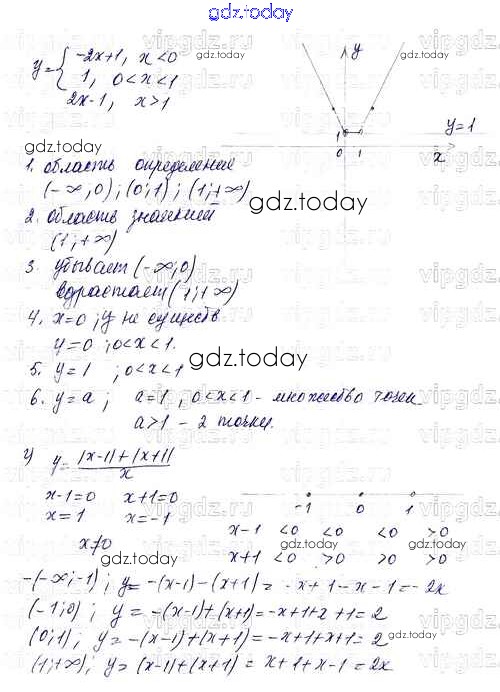 gdz.today
y={ -2x+1, x<0
1, 0<x<1
2x-1, x>1
y
y=1
1
0 1 x
gdz.today
1. область определения
(-∞,0); (0;1); (1;+∞)
gdz.today
2. область значений
(1;+∞)
3. убывает (-∞;0)
возрастает (1;+∞)
4. x=0; y не существ
y=0; 0<x<1.
gdz.today
5. y=1 ; 0<x<1
6. y=a; a=1, 0<x<1 - множество точек
a>1 - 2 точки.
y=|x-1|+|x+1|/x
x-1=0 x+1=0
x=1 x=-1
x≠0
gdz.today
-1 0 1
x-1 <0 <0 <0 >0
x+1 <0 >0 >0 >0
gdz.today
-(-∞;-1); y=-(x-1)-(x+1)=-x+1-x-1=-2x
(-1;0); y=-(x-1)+(x+1)=-x+1+x+1=2
gdz.today
(0;1); y=-(x-1)+(x+1)=-x+1+x+1=2
gdz.today
(1;+∞); y=(x-1)+(x+1)=x+1+x-1=2x
vipgdz.ru